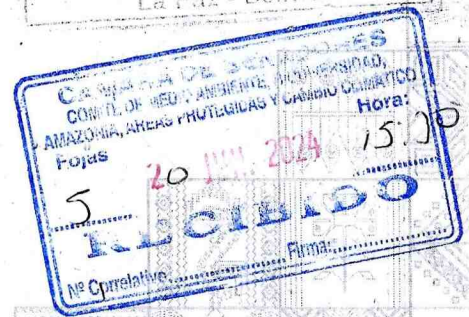 La Paz
CAMARA DE SENADORES
COMITE DE MEDIO AMBIENTE, BIODIVERSIDAD,
AMAZONIA, AREAS PROTEGIDAS Y CAMBIO CLIMATICO
Fojas Hora:
5 20 2024 15:30
RECIBIDO
Nº Correlativo............Firma:............